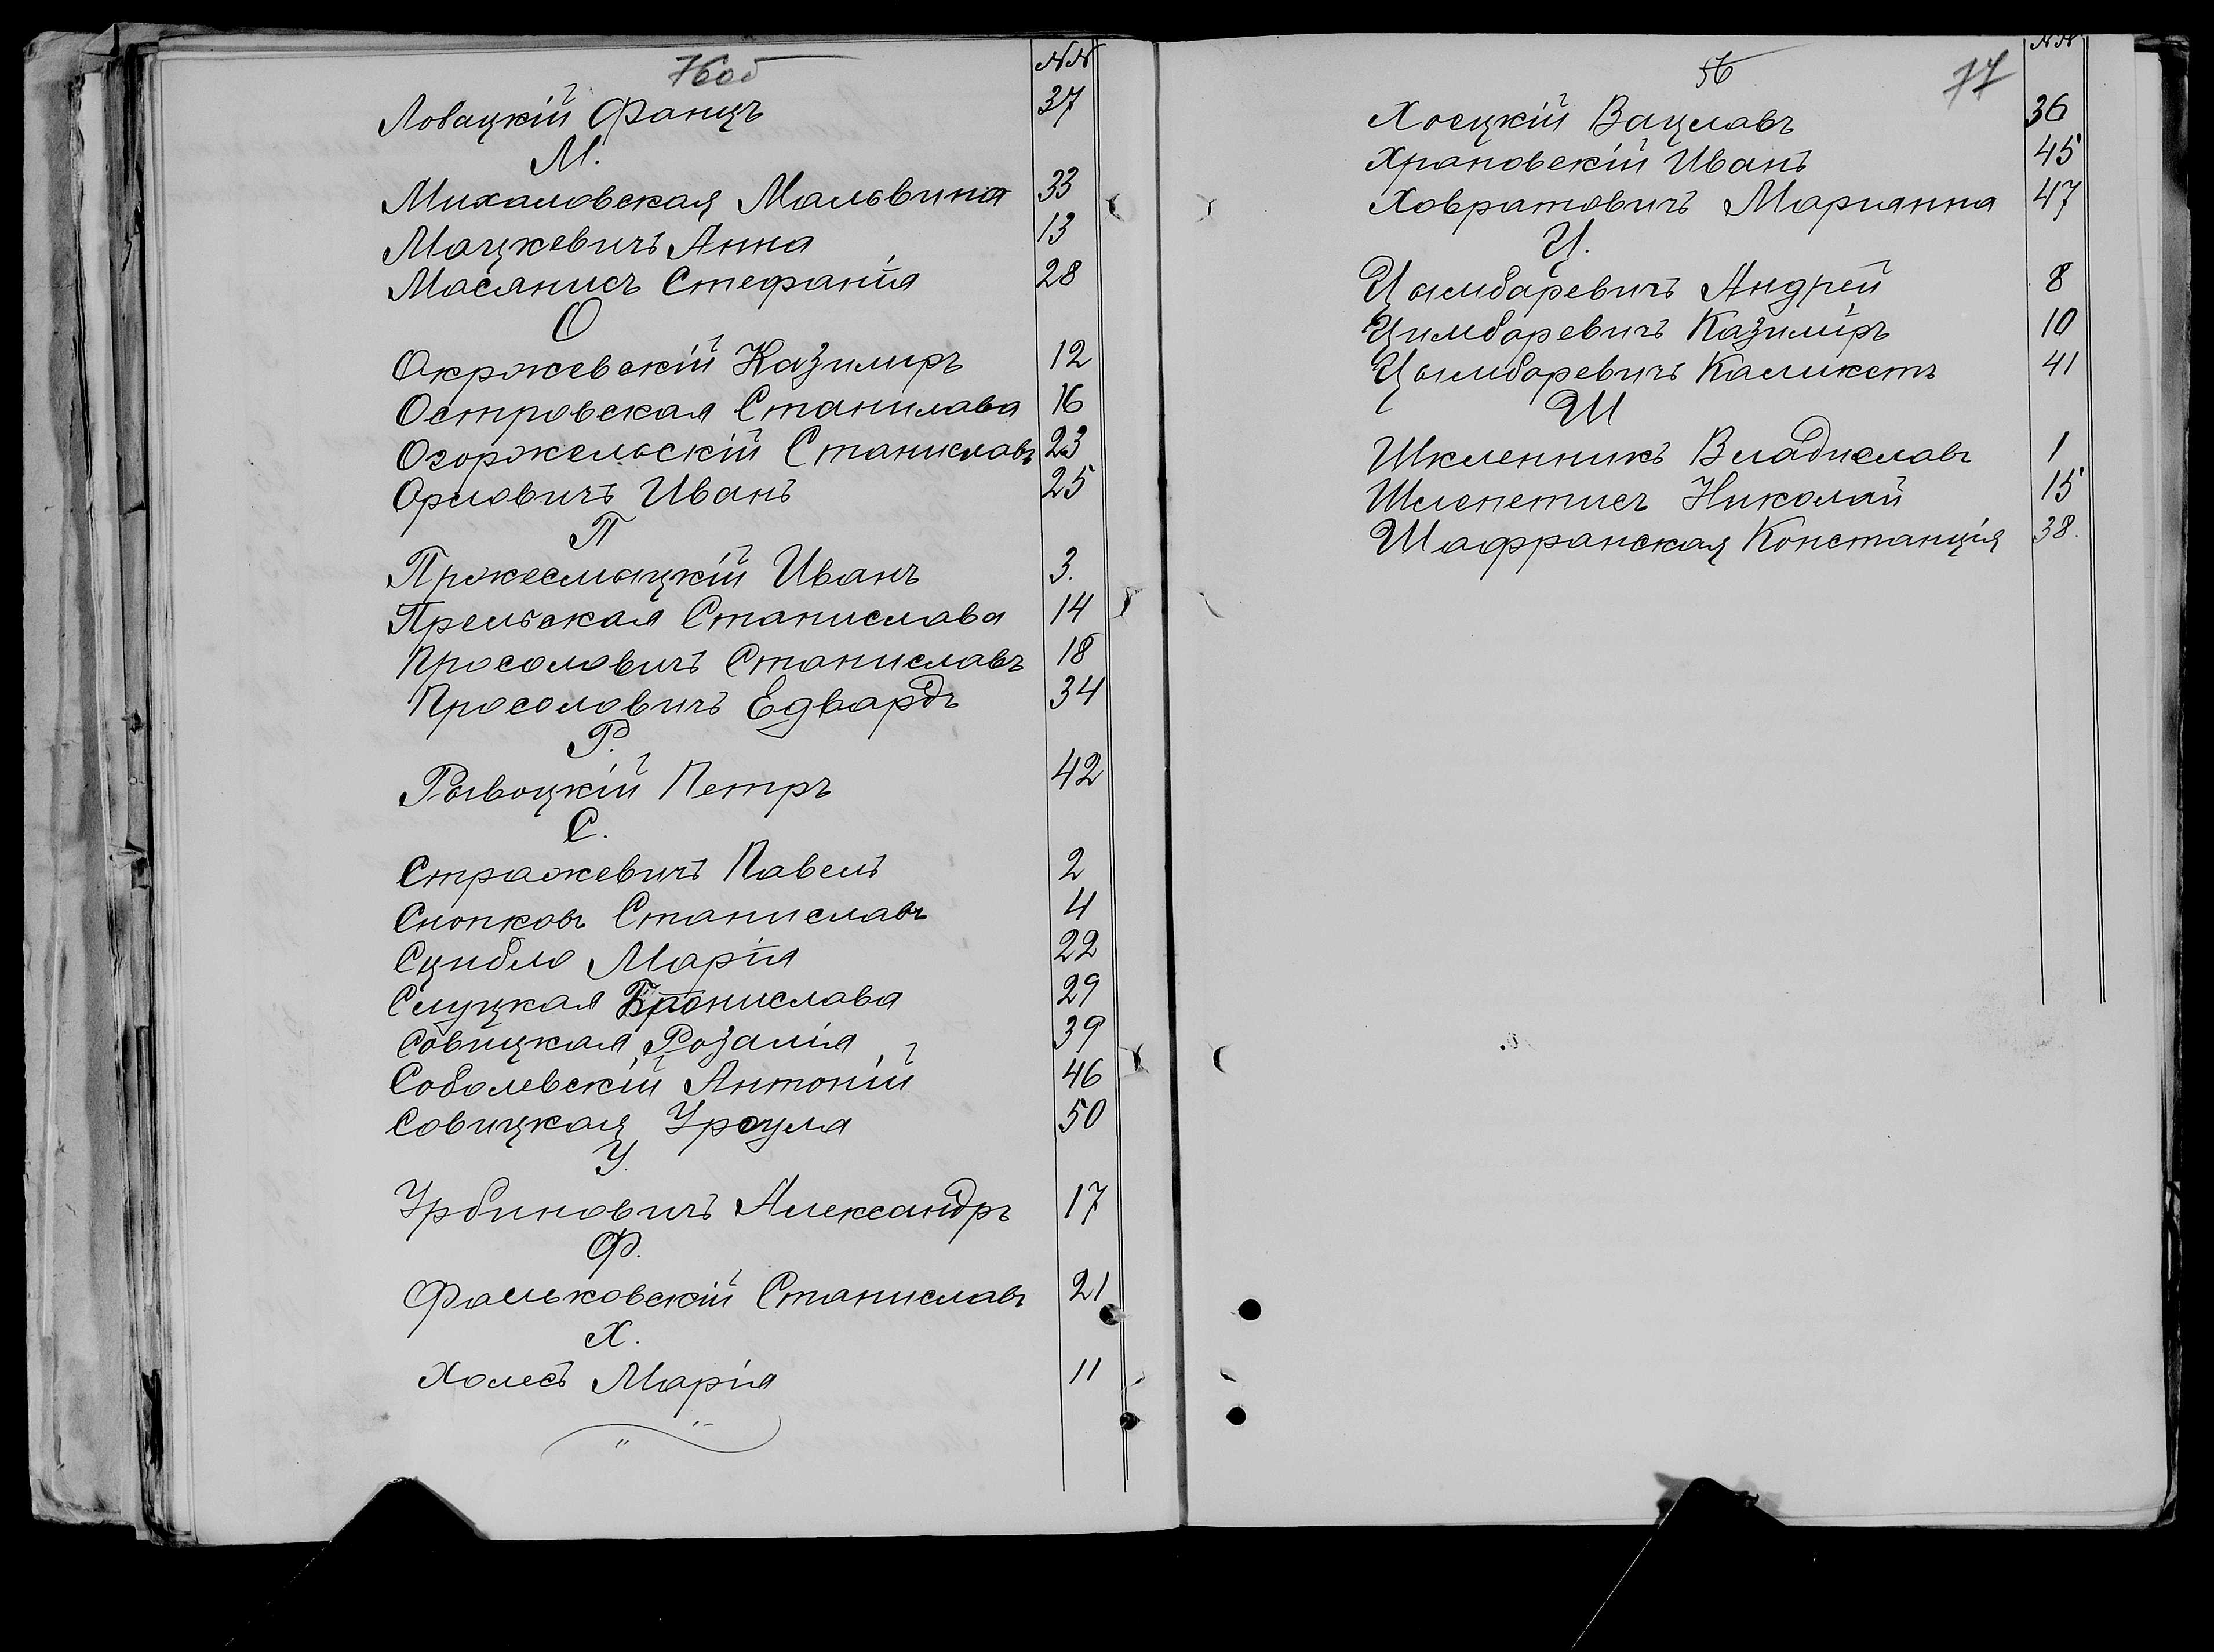 76об
NN
Ловацкій Фанцъ 37
М.
Михаловская Мальвина 33
Мацкевичъ Анна 13
Масянисъ Стефанія 28
О
Окржевскій Казимиръ 12
Островская Станилава 16
Огоржельскій Станиславъ 23
Орловичъ Иванъ 25
П
Пржесмыцкій Иванъ 3.
Прельская Станислава 14
Просоловичъ Станиславъ 18
Просоловичъ Едвардъ 34
Р.
Рывоцкій Петръ 42
С.
Стражевичъ Павелъ 2
Снопковъ Станиславъ 4
Сцибло Марія 22
Слуцкая Бронислава 29
Совицкая Розалія 39
Соболевскій Антоній 46
Совицкая Урсула 50
У.
Урбиновичъ Александръ 17
Ф.
Фальковскій Станиславъ 21
Х.
Холесъ Марія 11
56
77
NN
Хоецкій Вацлавъ 36
Храповскій Иванъ 45
Ховратовичъ Марианна 47
Ц.
Цымбаревичъ Андрей 8
Цимбаревичъ Казиміръ 10
Цымбаревичъ Каликстъ 41
Ш
Шкленникъ Владиславъ 1
Шлепетисъ Николай 15
Шафранская Констанція 38.